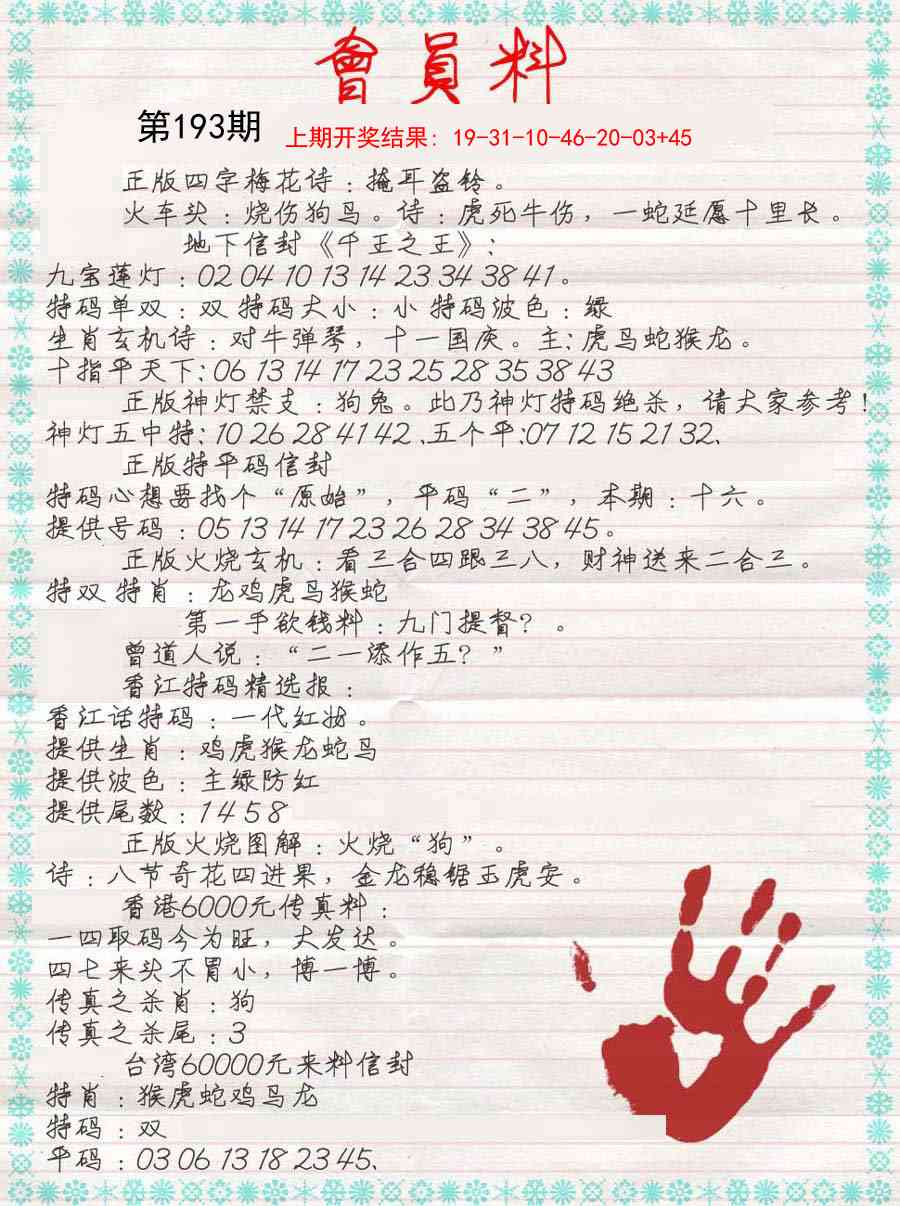 會員料
第193期 上期开奖结果：19-31-10-46-20-03+45
正版四字梅花诗：掩耳盗铃。
火车头：烧伤狗鸟。诗：虎死牛伤，一蛇延愿十里长。
地下信封《千王之王》：
九宝莲灯：02 04 10 13 14 23 34 38 41。
特码单双：双 特码大小：小 特码波色：绿
生肖玄机诗：对牛弹琴，十一国庆。主：虎马蛇猴龙。
十指平天下：06 13 14 17 23 25 28 35 38 43
正版神灯禁支：狗兔。此乃神灯特码绝杀，请大家参考！
神灯五中特：10 26 28 41 42、五个平：07 12 15 21 32、
正版特平码信封
特码心想要找个“原始”，平码“二”，本期：十六。
提供号码：05 13 14 17 23 26 28 34 38 45。
正版火烧玄机：看三合四跟三八，财神送来二合三。
特双 特肖：龙鸡虎马猴蛇
第一手欲钱料：九门提督？。
曾道人说：“二一添作五？”
香江特码精选报：
香江话特码：一代红妆。
提供生肖：鸡虎猴龙蛇马
提供波色：主绿防红
提供尾数：1 4 5 8
正版火烧图解：火烧“狗”。
诗：八节奇花四进果，金龙稳锯玉虎安。
香港6000元传真料：
一四取码今为旺，大发达。
四七来头不胃小，博一博。
传真之杀肖：狗
传真之杀尾：3
台湾60000元来料信封
特肖：猴虎蛇鸡马龙
特码：双
平码：03 06 13 18 23 45、